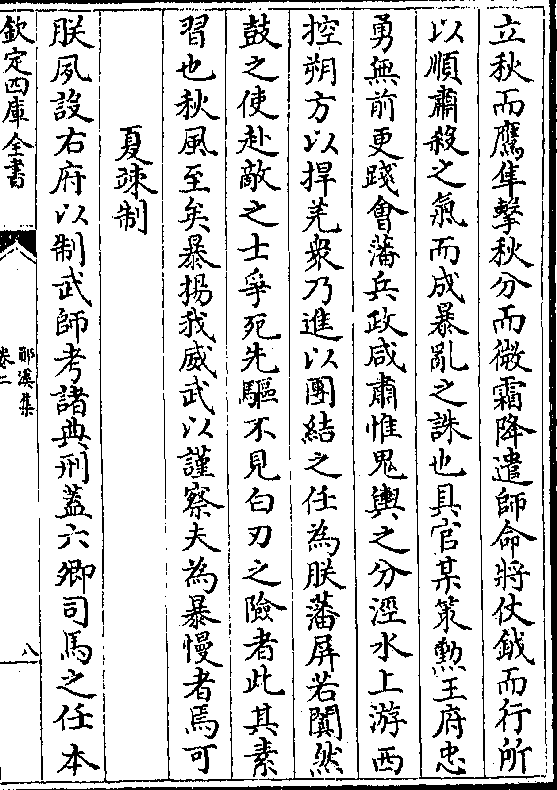 立秋而鷹隼擊秋分而微霜降遣師命將仗鉞而行所
以順肅殺之氣而成暴亂之誅也具官某策勲王府忠
勇無前更踐會藩兵政咸肅惟鬼輿之分涇水上游西
控朔方以捍羌衆乃進以團結之任為朕藩屏若闐然
鼓之使赴敵之士爭死先驅不見白刃之險者此其素
習也秋風至矣暴揚我威武以謹察夫為暴慢者焉可
夏竦制
朕夙設右府以制武師考諸典刑蓋六卿司馬之任本
欽定四庫全書
鄖溪集
卷二
八